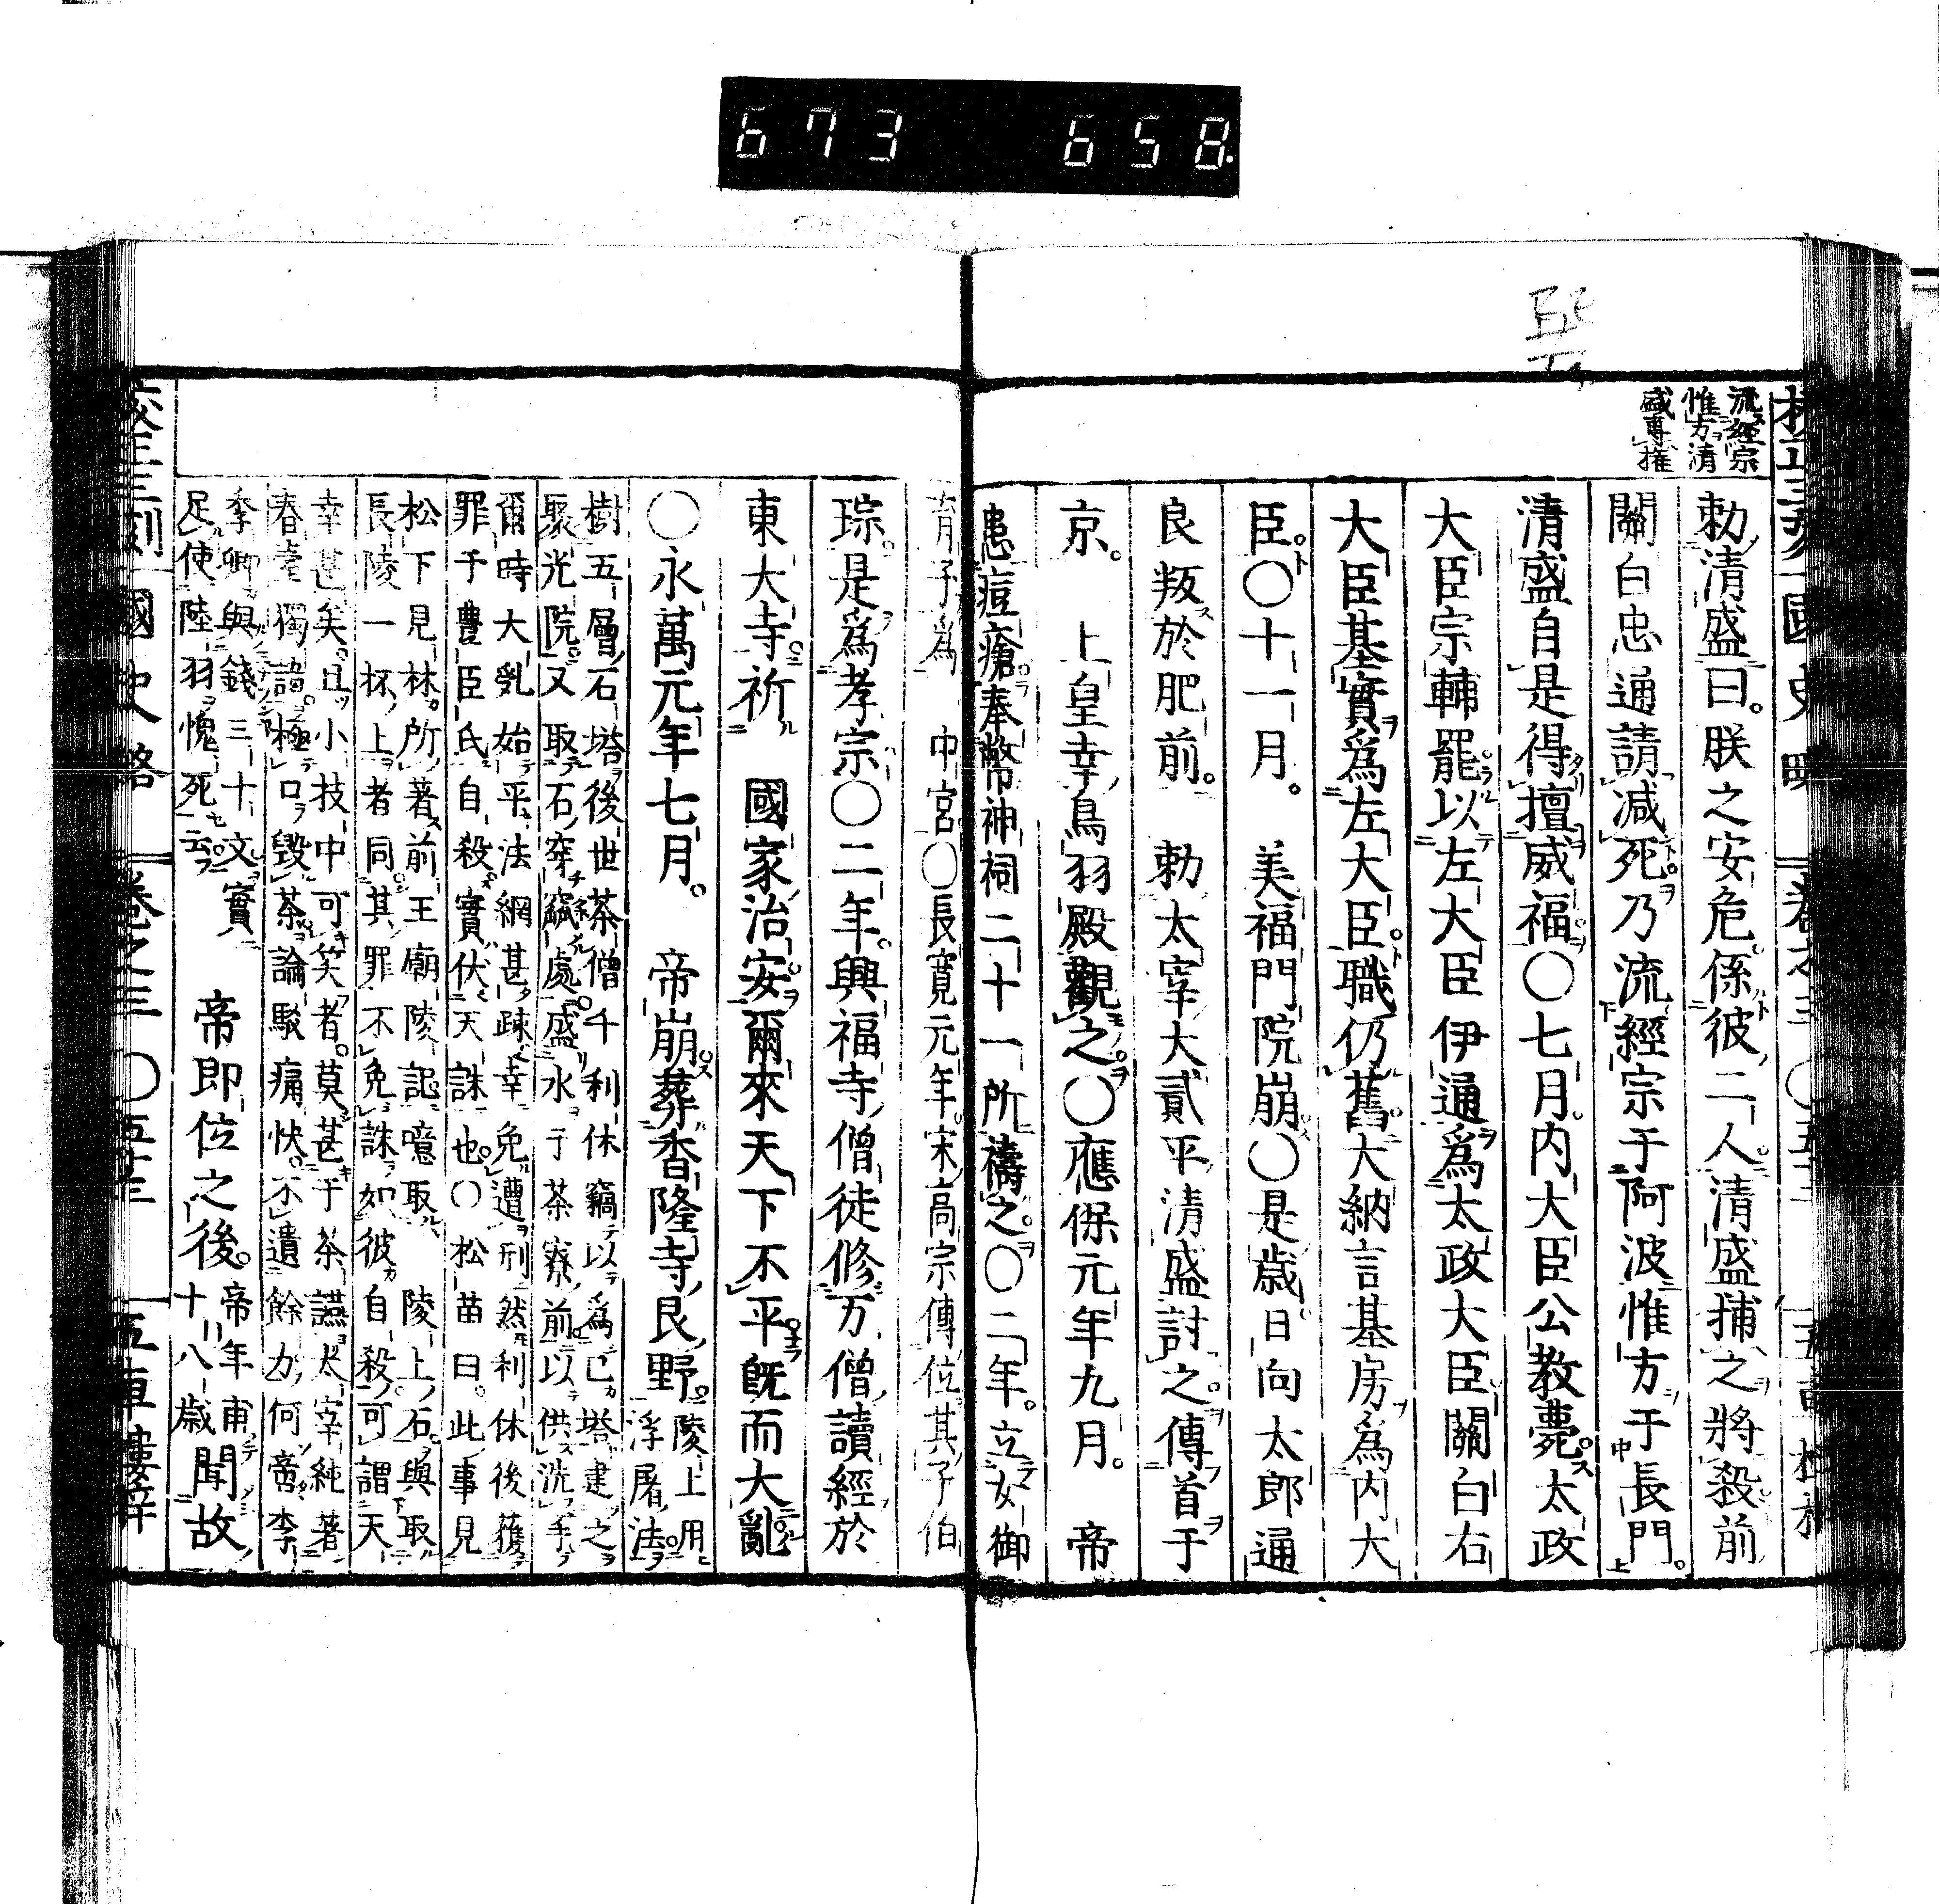 673 658.
流經宗
惟方清
盛專権
勅清盛曰。朕之安危係彼二人。清盛捕之將殺前
關白忠通請減死乃流經宗于阿波惟方于長門。
清盛自是得擅威福○七月。内大臣公教薨。太政
大臣宗輔罷以左大臣伊通爲太政大臣關白右
大臣基實爲左大臣。職仍舊大納言基房爲内大
臣。○十一月。美福門院崩○是歳日向太郎通
良叛於肥前。勅太宰大貳平清盛討之。傳首于
京。上皇幸鳥羽殿觀之。○應保元年九月。帝
患痘瘡奉幣神祠二十一所禱之。○二年。立女御
育子爲中宮○長寛元年。宋高宗傳位其子伯
琮。是爲孝宗○二年。興福寺僧徒修万僧讀經於
東大寺祈國家治安爾來天下不平既而大亂
○永萬元年七月。帝崩葬香隆寺艮野。陵上用
浮屠法
樹五層石塔後世茶僧千利休竊以爲己塔建之
聚光院又取石穿竅處盛水于茶寮前以供洗手
爾時大乱始平法網甚疎幸免遭刑然利休後獲
罪于豊臣氏自殺實伏天誅也○松苗曰。此事見
松下見林所著前王廟陵記噫取陵上石與取
長陵一抔上者同其罪不免誅如彼自殺可謂天
幸甚矣。且小技中可笑者。莫甚于茶讌太宰純著
春臺獨語。極口毀茶論駁痛快。不遺餘力何啻李
李卿與錢三十文實
足使陸羽愧死云
帝即位之後。帝年甫
十八歳
聞故
國史略 卷之三 ○五十三 五車樓梓